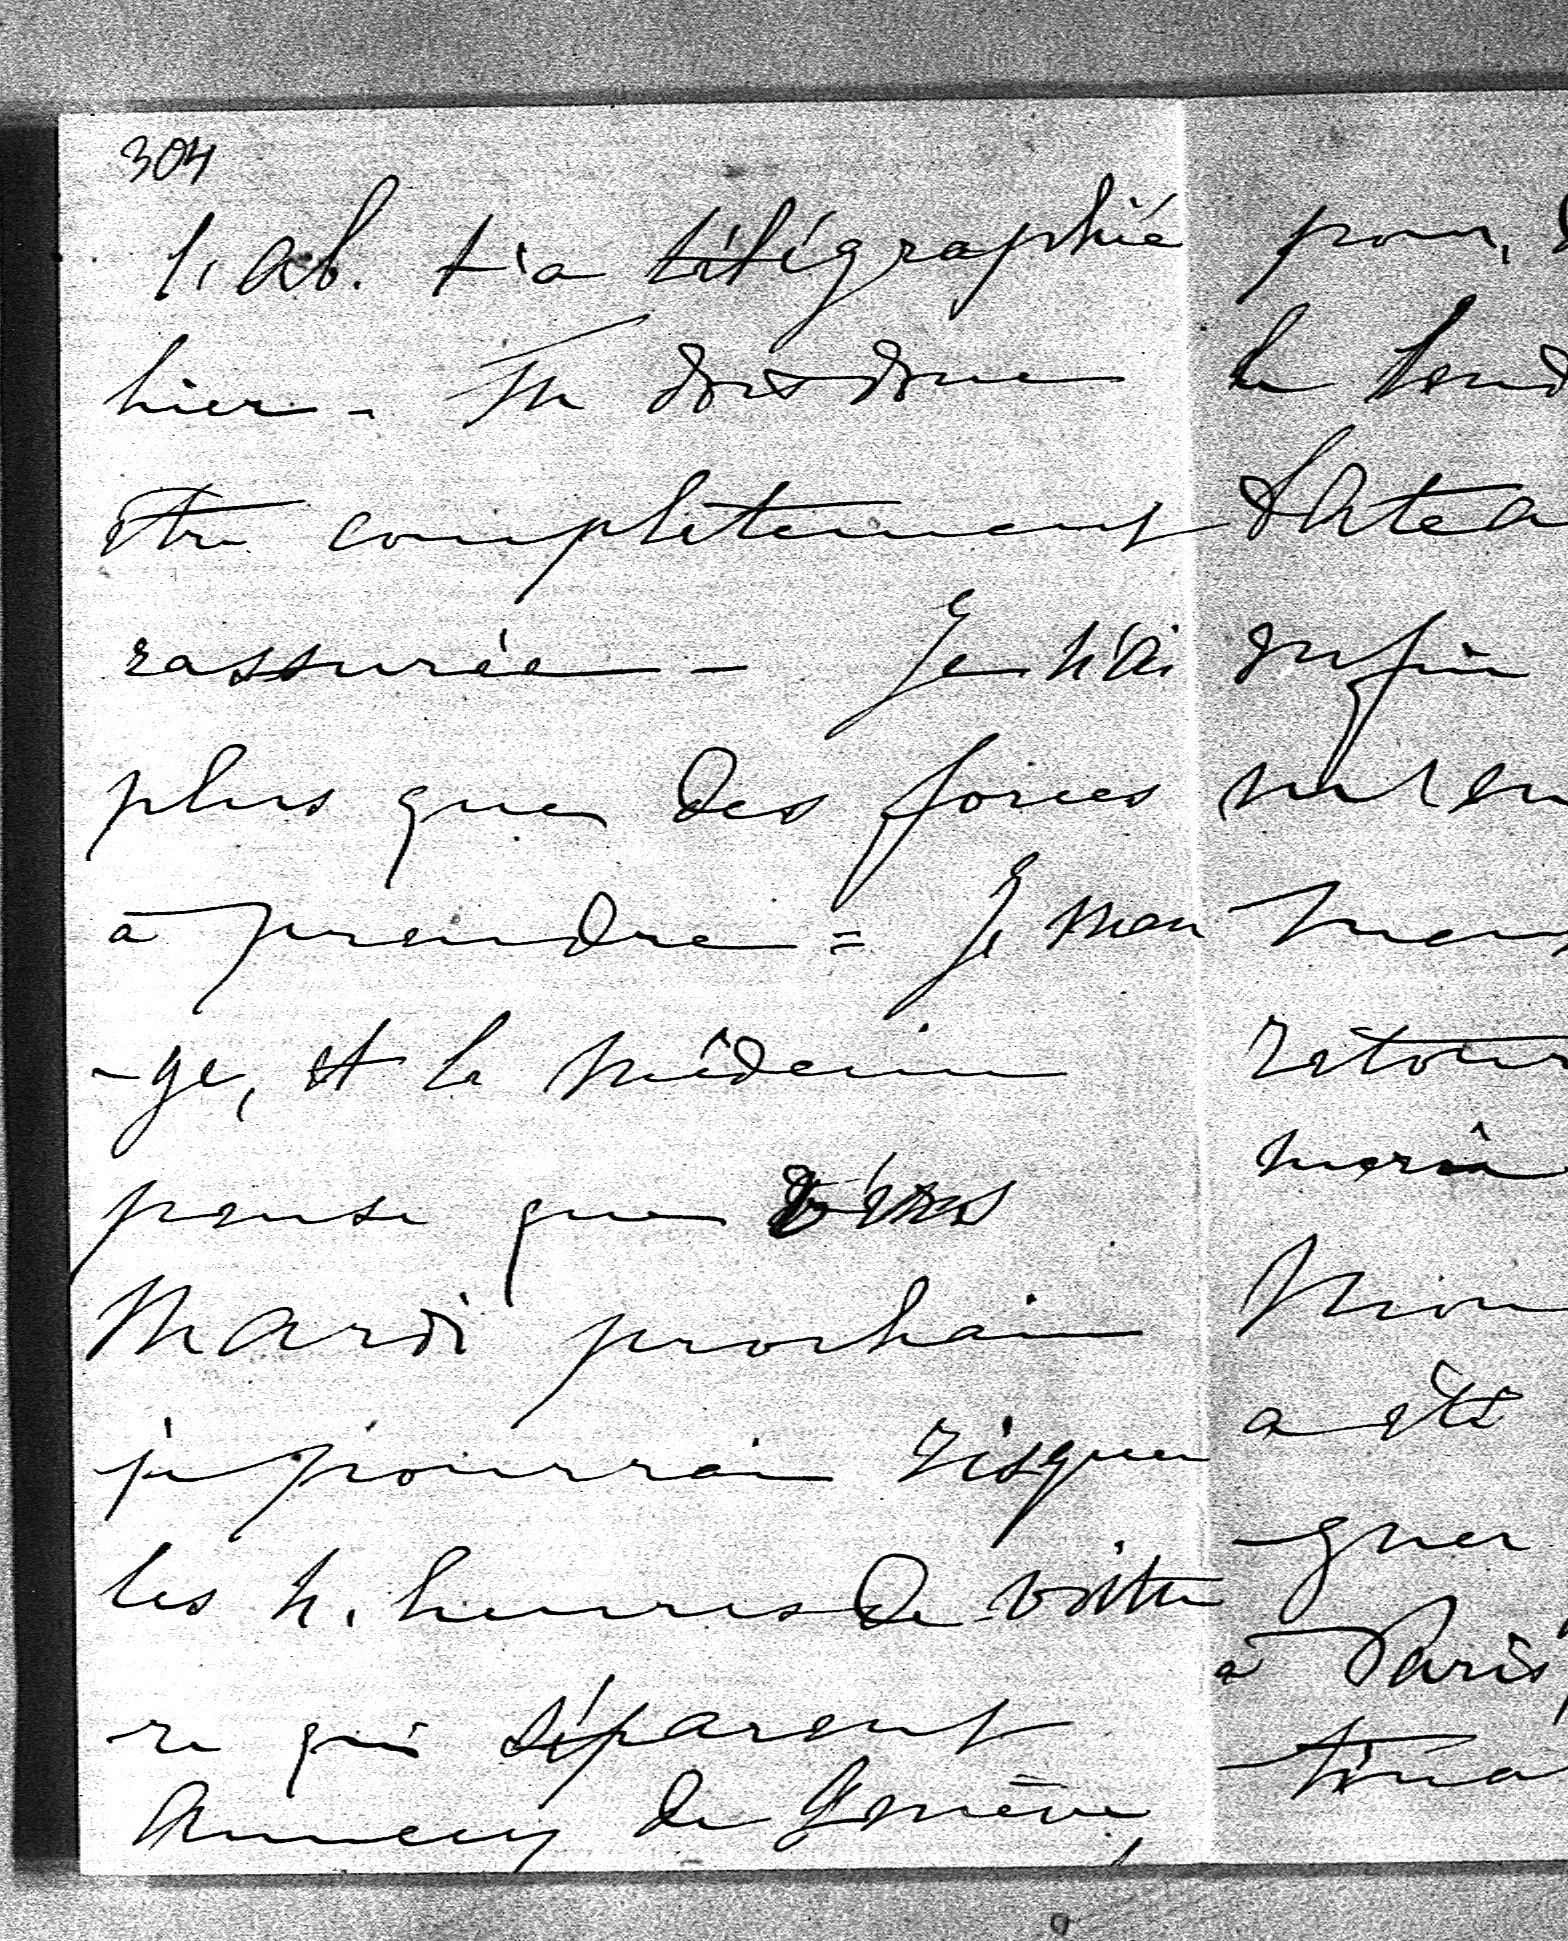 304
l'ab. t'a télégraphié
hier - Tu dois donc
être complètement
rassurée - Je n'ai
plus que des forces
à prendre = Je man
-ge, et le médecin
pense que dès
Mardi prochain
je pourrai risquer
les h. heures de voitu
re qui séparent
Annecy de Genève,
pour,
le
enfin
retour
a été
-gner
à Paris